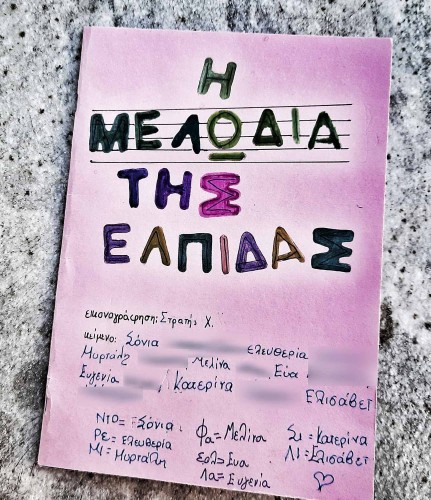 Η
ΜΕΛΟΔΙΑ
ΤΗΣ
ΕΛΠΙΔΑΣ
εικονογράφηση: Στρατής Χ.
κείμενο: Σόνια Ελευθερία
Μυρτάλη, Μελίνα, Εύα
Ευγενία, Κατερίνα
Ελισάβετ
ΝΤΟ = Σόνια Φα = Μελίνα Σι = Κατερίνα
ΡΕ = Ελευθερία Σολ = Ευα Λι = Ελισάβετ
ΜΙ = Μυρτάλη Λα = Ευγενία